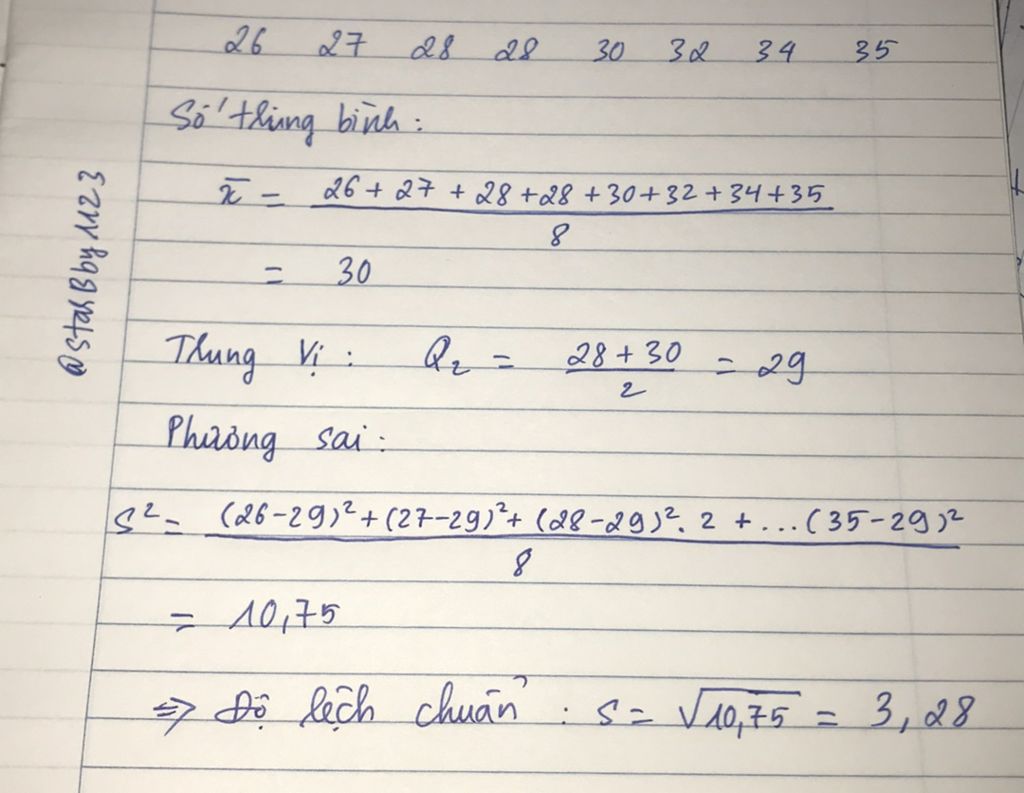 26 27 28 28 30 32 34 35
Số trung bình:
x̄ = (26 + 27 + 28 + 28 + 30 + 32 + 34 + 35) / 8
= 30
Trung Vị: Q₂ = (28 + 30) / 2 = 29
Phương sai:
S² = ((26-29)² + (27-29)² + (28-29)². 2 + ... (35-29)²) / 8
= 10,75
=> Độ lệch chuẩn: S = √10,75 = 3,28
@starBby1123